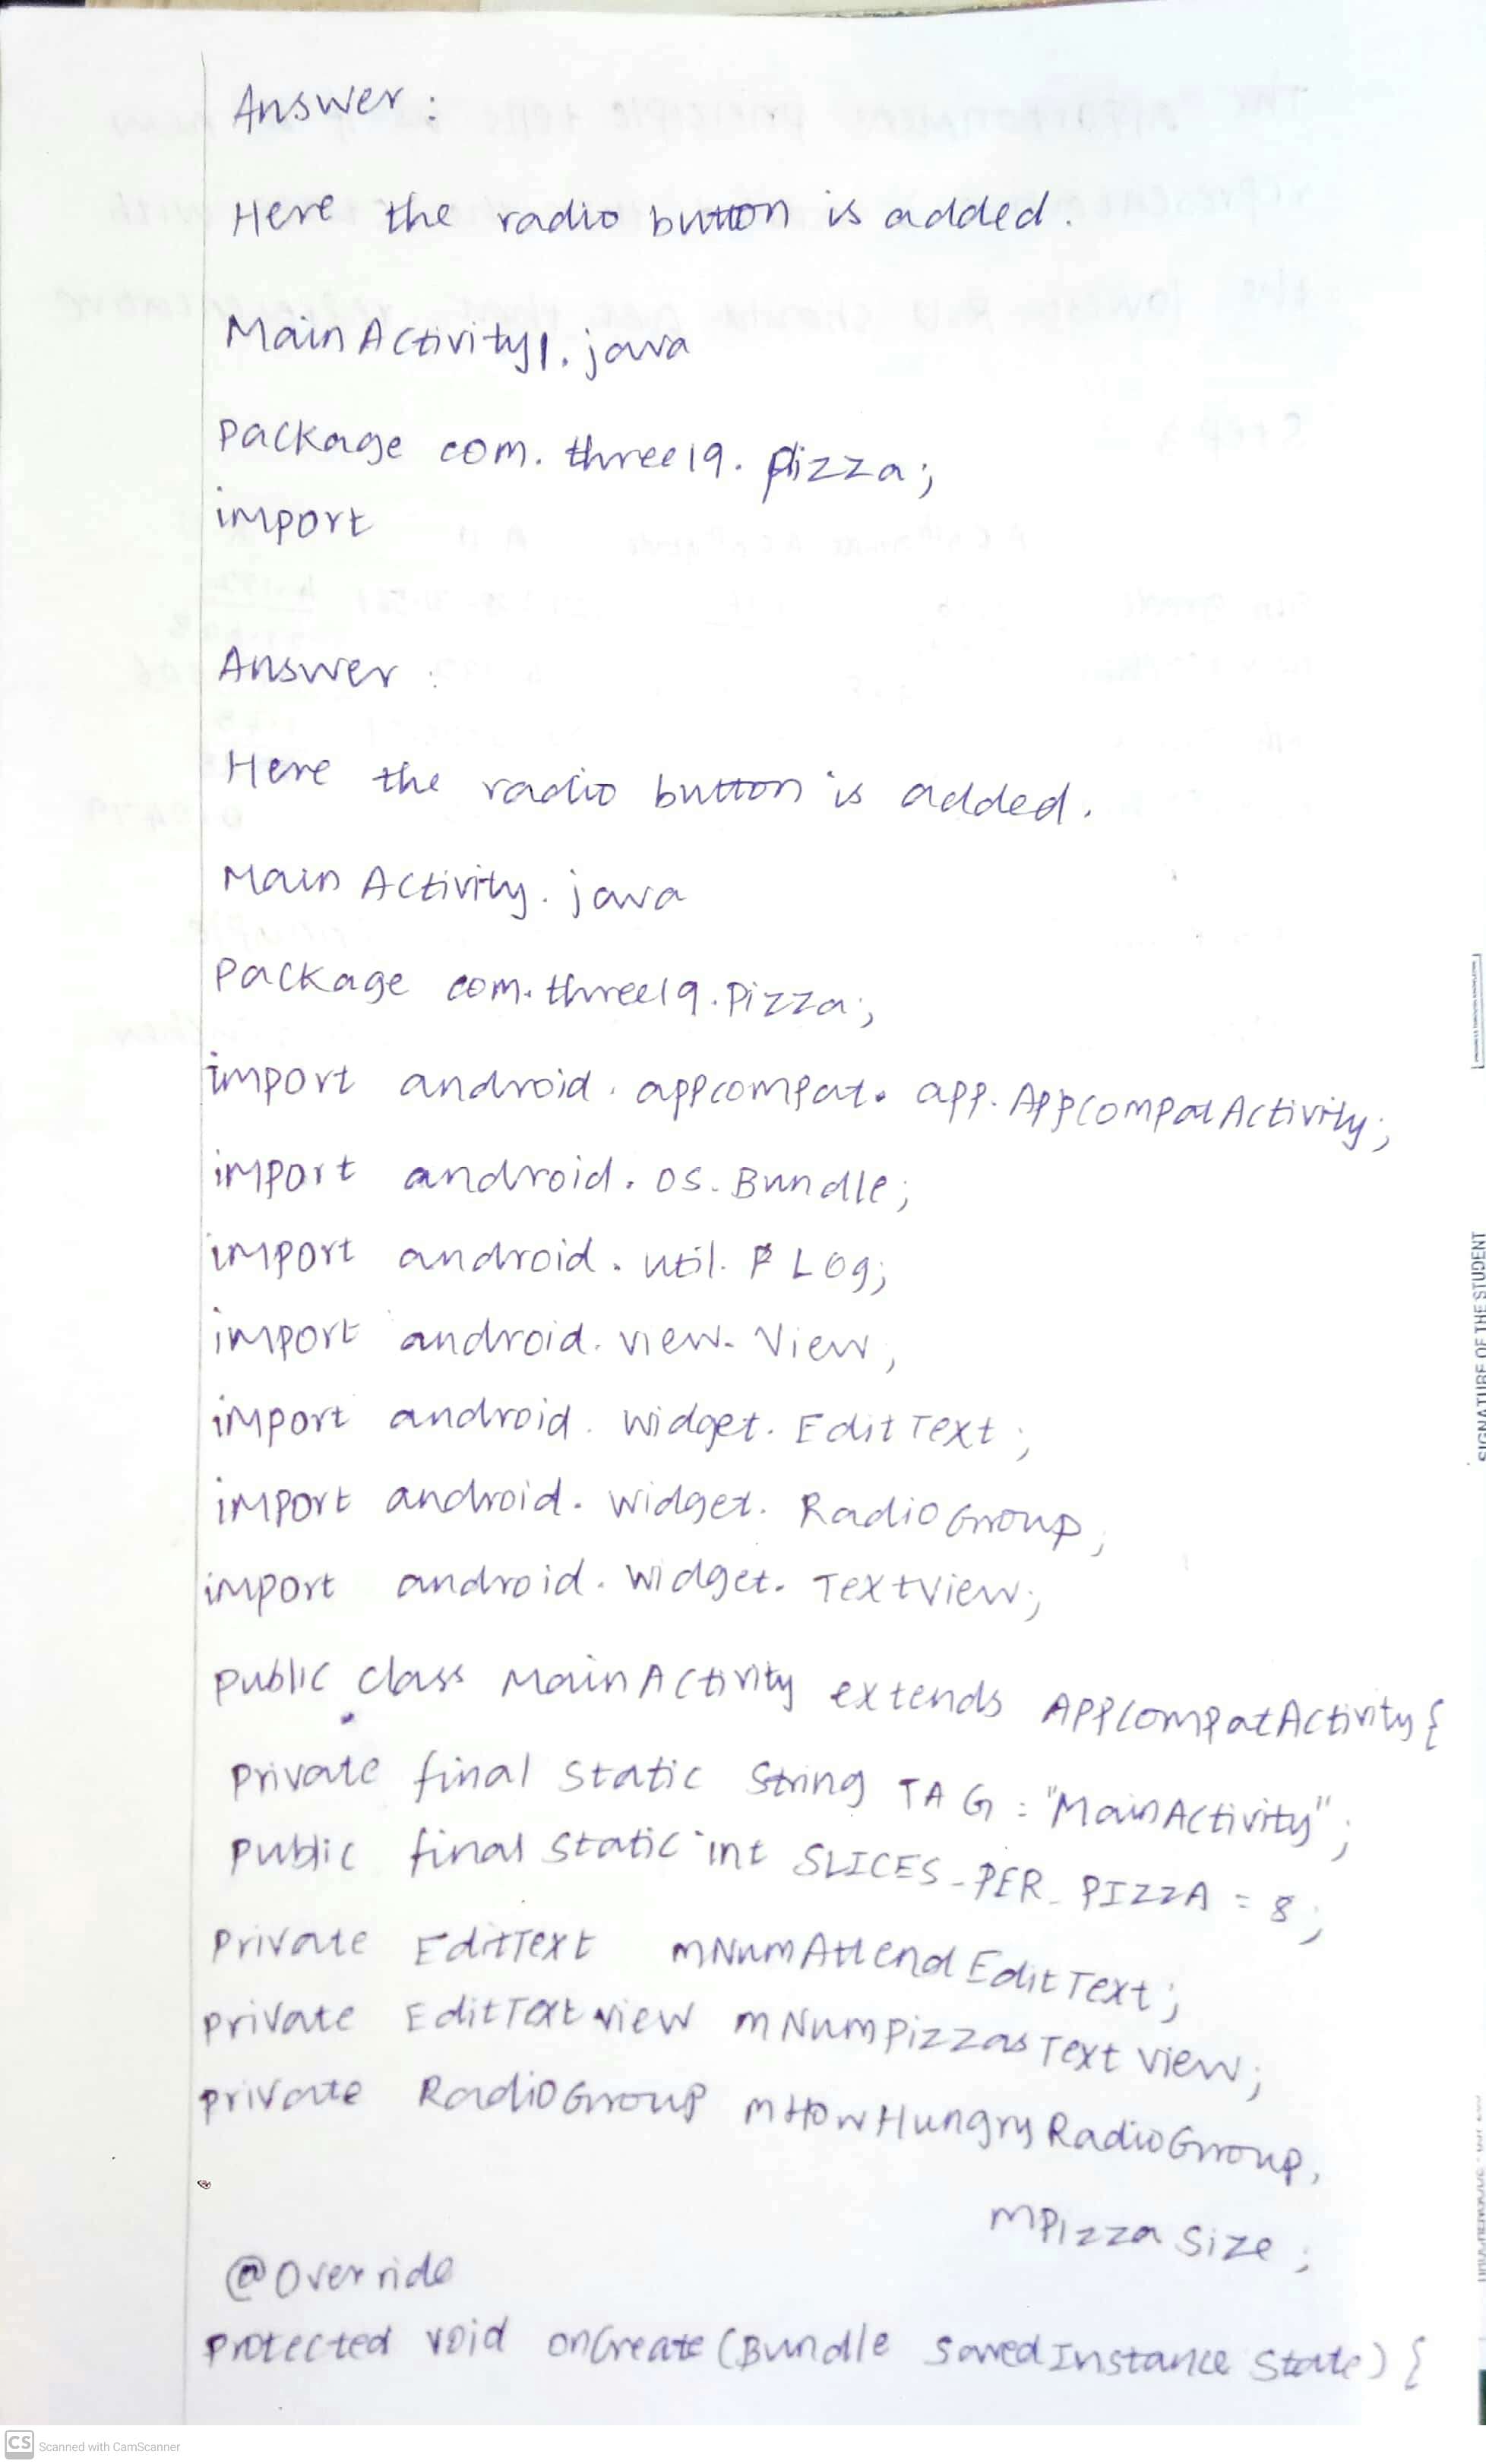 Answer :
Here the radio button is added.
MainActivity1.java
Package com.three19.pizza;
import
Answer :
Here the radio button is added.
Main Activity.java
Package com.three19.Pizza;
import android.appcompat.app.AppCompatActivity;
import android.os.Bundle;
import android.util.Log;
import android.view.View;
import android.widget.EditText;
import android.widget.RadioGroup;
import android.widget.TextView;
public class MainActivity extends AppCompatActivity{
private final static String TAG = "MainActivity";
public final static int SLICES_PER_PIZZA = 8;
private EditText mNumAttendEditText;
private EditTextView mNumPizzasTextView;
private RadioGroup mHowHungryRadioGroup,
mPizzaSize;
@Override
protected void onCreate(Bundle savedInstanceState){
SIGNATURE OF THE STUDENT
CS Scanned with CamScanner